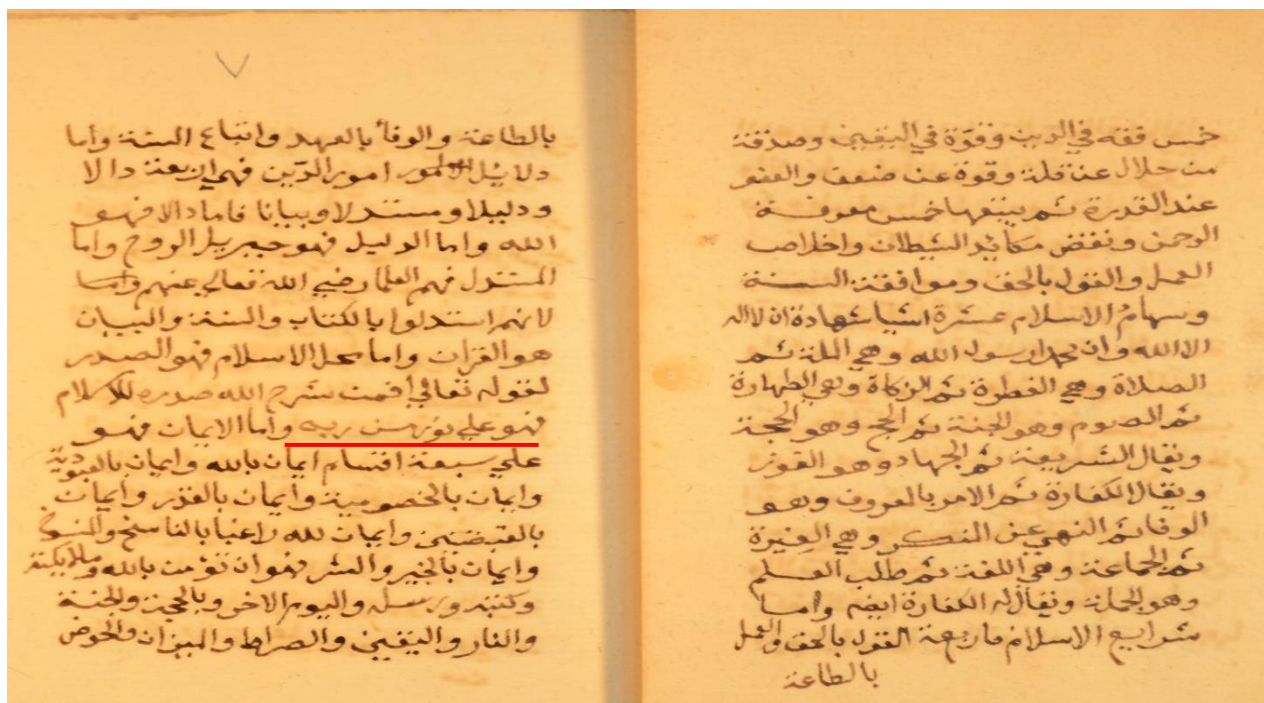 خمس فقه في الدين وقوة في اليقين وصدقة
من حلال عن قلة وقوة عن ضعف والعفو
عند القدرة ثم يتبعها خمس معرفة
الرحمن ونقض مكائد الشيطان واخلاص
العمل والقول بالحق وموافقة السنة
وسهام الاسلام عشرة اشيا شهادة ان لااله
الاالله وان محمدا رسول الله وهي الملة ثم
الصلاة وهي الفطرة ثم الزكاة وهي الطهارة
ثم الصوم وهو الجنة ثم الحج وهو الحجة
ويقال الشريعة ثم الجهاد وهو الفوز
ويقال الكفارة ثم الامر بالمعروف وهو
الوفا ثم النهي عن المنكر وهي الغيرة
ثم الجماعة وهي اللفة ثم طلب العلم
وهو الجملة ويقال له الكفارة ايضا واما
شرايع الاسلام فاربعة القول بالحق والعمل
بالطاعة
٧
بالطاعة والوفأ بالعهد واتباع السنة واما
دلائل امور الدين فهي اربعة دالا
ودليلا ومستدلا وبيانا فاما دالا فهو
الله واما الدليل فهو جبريل الروح واما
المستدل فهم العلما رضي الله تعالي عنهم واما
لانهم استدلوا بالكتاب والسنة والبيان
هو القران واما محل الاسلام فهو الصدر
لقوله تعالي افمن شرح الله صدره للاسلام
فهو علي نور من ربه واما الايمان فهو
علي سبعة اقسام ايمان بالله وايمان بالعبودية
وايمان بالخصوصية وايمان بالقدر وايمان
بالقبضتين وايمان لله بالناسخ والمنسوخ
وايمان بالخير والشر فهو ان تؤمن بالله وملايكته
وكتبه ورسله واليوم الاخر وبالحجة والجنة
والنار واليقين والصراط والميزان والحوض